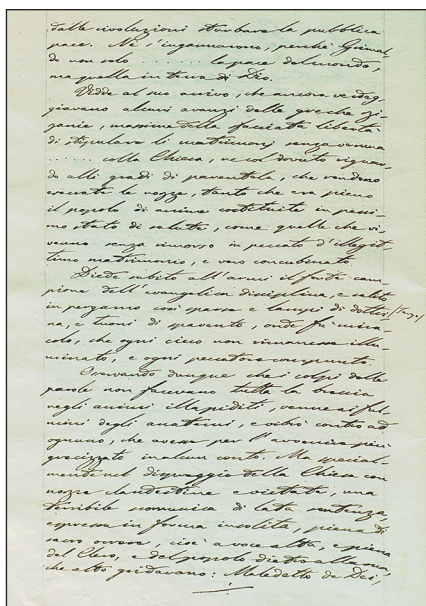 dalle rivoluzioni sturbare la pubblica
pace. Nè s'ingannarono, perchè Grimal-
do non solo ........ la pace del mondo,
ma quella in terra di Dio.
Vidde al suo arrivo, che ancora verdeg-
giavano alcuni avanzi delle greche zi-
zanie, massime della sfacciata libertà
di stipulare li matrimonj senza veruna
..... colla Chiesa, nè col dovuto riguar-
do alli gradi di parentela, che rendono
esecrate le nozze, tanto che era pieno
il popolo di anime costituite in pessi-
mo stato di salute, come quelle che vi-
veano senza rimorso in peccato d'illegit-
timo matrimonio, e vero concubinato.
Diede subito all'armi il prode cam-
pione dell'evangelica disciplina, e salito
in pergamo così sparse e lampi di dottri-
na, e tuoni di spavento, onde fe' mira-
colo, che ogni cieco non rimanesse illu-
minato, e ogni peccatore compunto.
Osservando dunque che i colpi delle
parole non facevano tutta la breccia
negli animi illapiditi, venne ai ful-
mini degli anatemi, e vibrò contro ad
ognuno, che avesse per l'avvenire più
grecizzato in alcun conto. Ma special-
mente nel dispreggio della Chiesa con
nozze clandestine e vietate, una
terribile scomunica di lata sentenza,
espressa in forma insolita, piena di
sacro orrore, cioè a voce alta, e piena
del Clero, e del popolo dietro alla sua,
che alto gridavano: Maledetto da Dei,